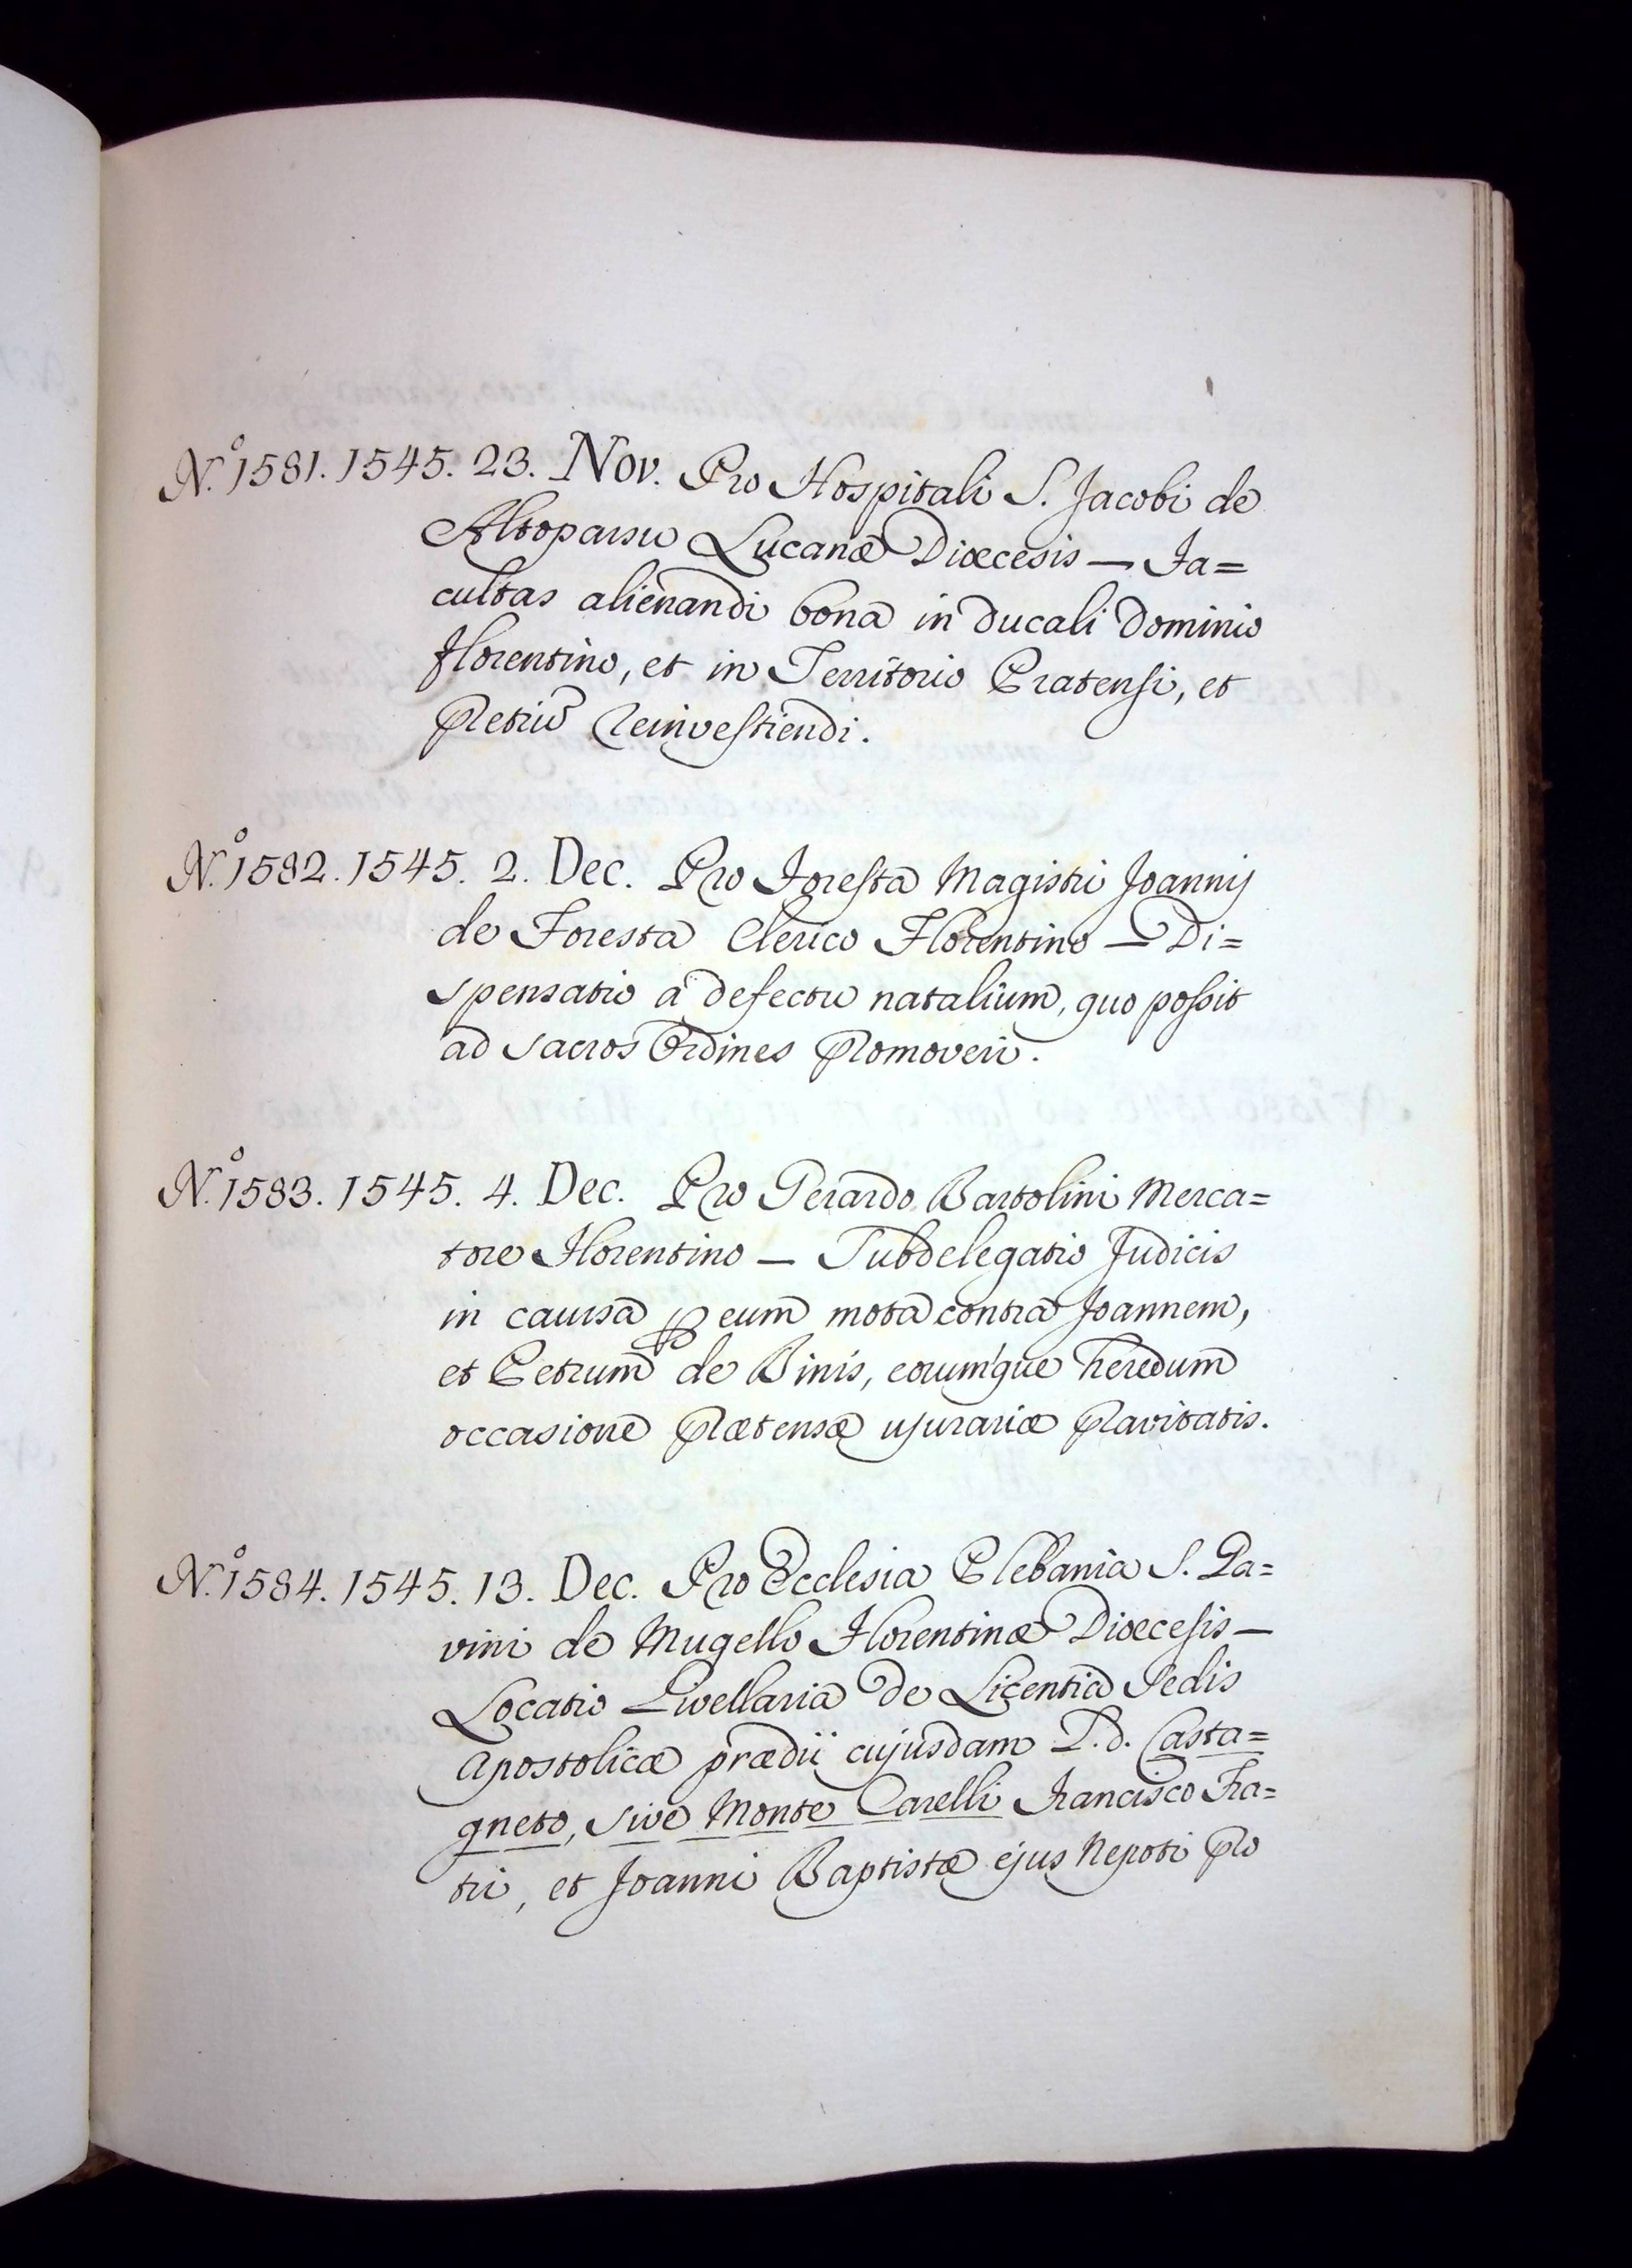 N.º 1581. 1545. 23. Nov. Pro Hospitali S. Jacobi de
Altopassu Lucanæ Diœcesis — Fa=
cultas alienandi bona in ducali dominio
florentino, et in Territorio Pratensi, et
pretiũ reinvestiendi.
N.º 1582. 1545. 2. Dec. Pro Foresta Magistri Joannis
de Foresta Clerico Florentino — Di=
spensatio a defectu natalium, quo possit
ad sacros Ordines promoveri.
N.º 1583. 1545. 4. Dec. Pro Gerardo Bartolini Merca=
tore Florentino — Subdelegatio Judicis
in caussa ꝑ eum mota contra Joannem,
et Petrum de Binis, eorumque heredum
occasione prætensæ usurariæ pravitatis.
N.º 1584. 1545. 13. Dec. Pro Ecclesia Plebania S. Ga=
vini de Mugello Florentinæ Diœcesis —
Locatio Livellaria de Licentia Sedis
Apostolicæ prædii cujusdam L.d. Casta=
gneto, sive Monte Carelli Francisco Fra=
tri, et Joanni Baptistæ ejus Nepoti pro